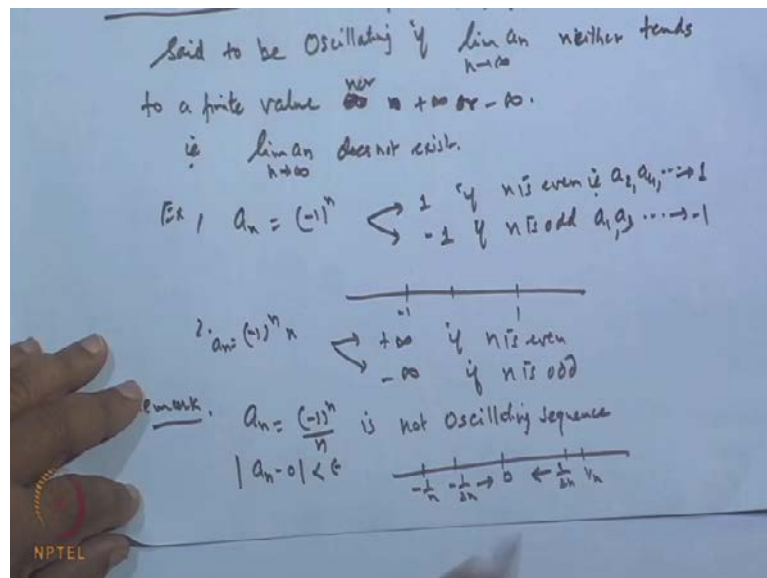 Said to be Oscillating if lim an neither tends
n→∞
to a finite value nor +∞ or -∞.
ie lim an does not exist.
n→∞
Ex 1 an = (-1)^n 1 if n is even ie a2, a4, ...→ 1
-1 if n is odd a1, a3 ...→ -1
-1 1
2. an = (-1)^n n +∞ if n is even
-∞ if n is odd
emark. an = (-1)^n/n is not Oscillating sequence
|an-0| < ε -1/n -1/2n → 0 ← 1/2n 1/n
NPTEL